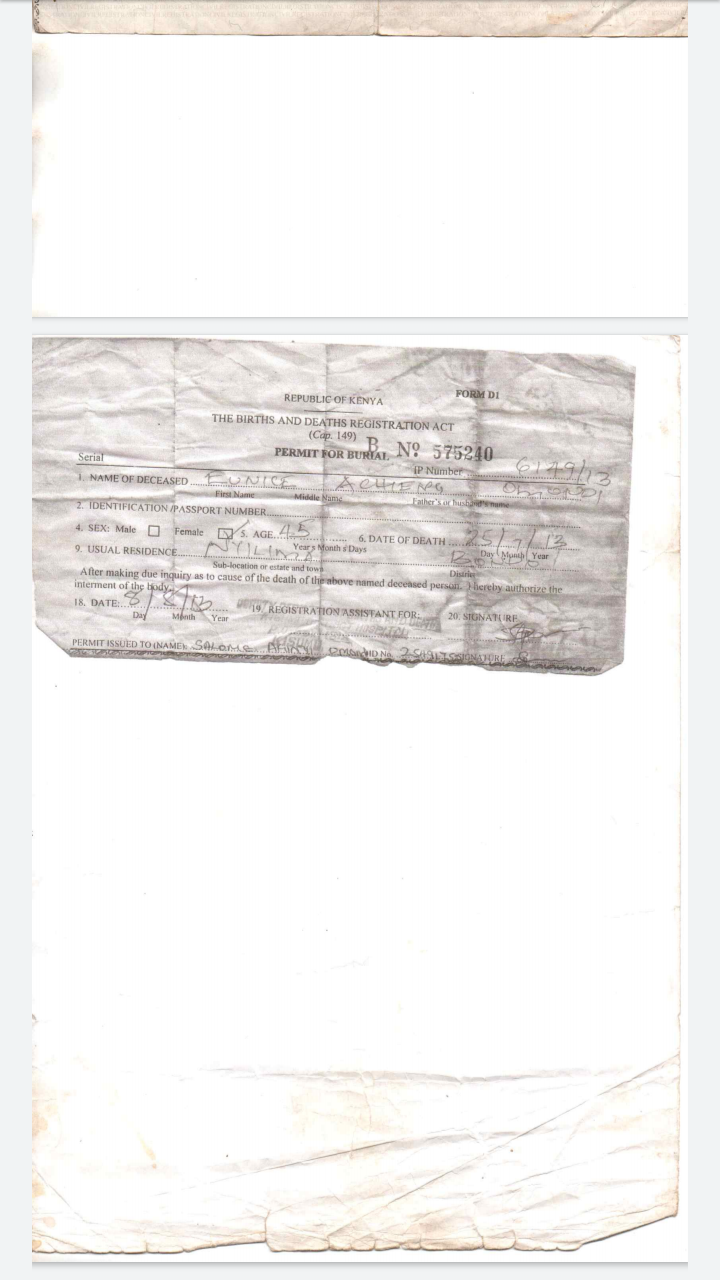 REPUBLIC OF KENYA
FORM D1
THE BIRTHS AND DEATHS REGISTRATION ACT
(Cap. 149)
PERMIT FOR BURIAL B Nº 575240
Serial
IP Number 6149/13
1. NAME OF DECEASED EUNICE ACHIENG
First Name Middle Name Father's or husband's name
2. IDENTIFICATION /PASSPORT NUMBER
4. SEX: Male Female 5. AGE 45 6. DATE OF DEATH 25/7/13
Year s Month s Days Day Month Year
9. USUAL RESIDENCE
Sub-location or estate and town District
After making due inquiry as to cause of the death of the above named deceased person. I hereby authorize the
interment of the body.
18. DATE: 8/8/13 19. REGISTRATION ASSISTANT FOR: 20. SIGNATURE
Day Month Year
PERMIT ISSUED TO (NAME): SALOME ID No. SIGNATURE